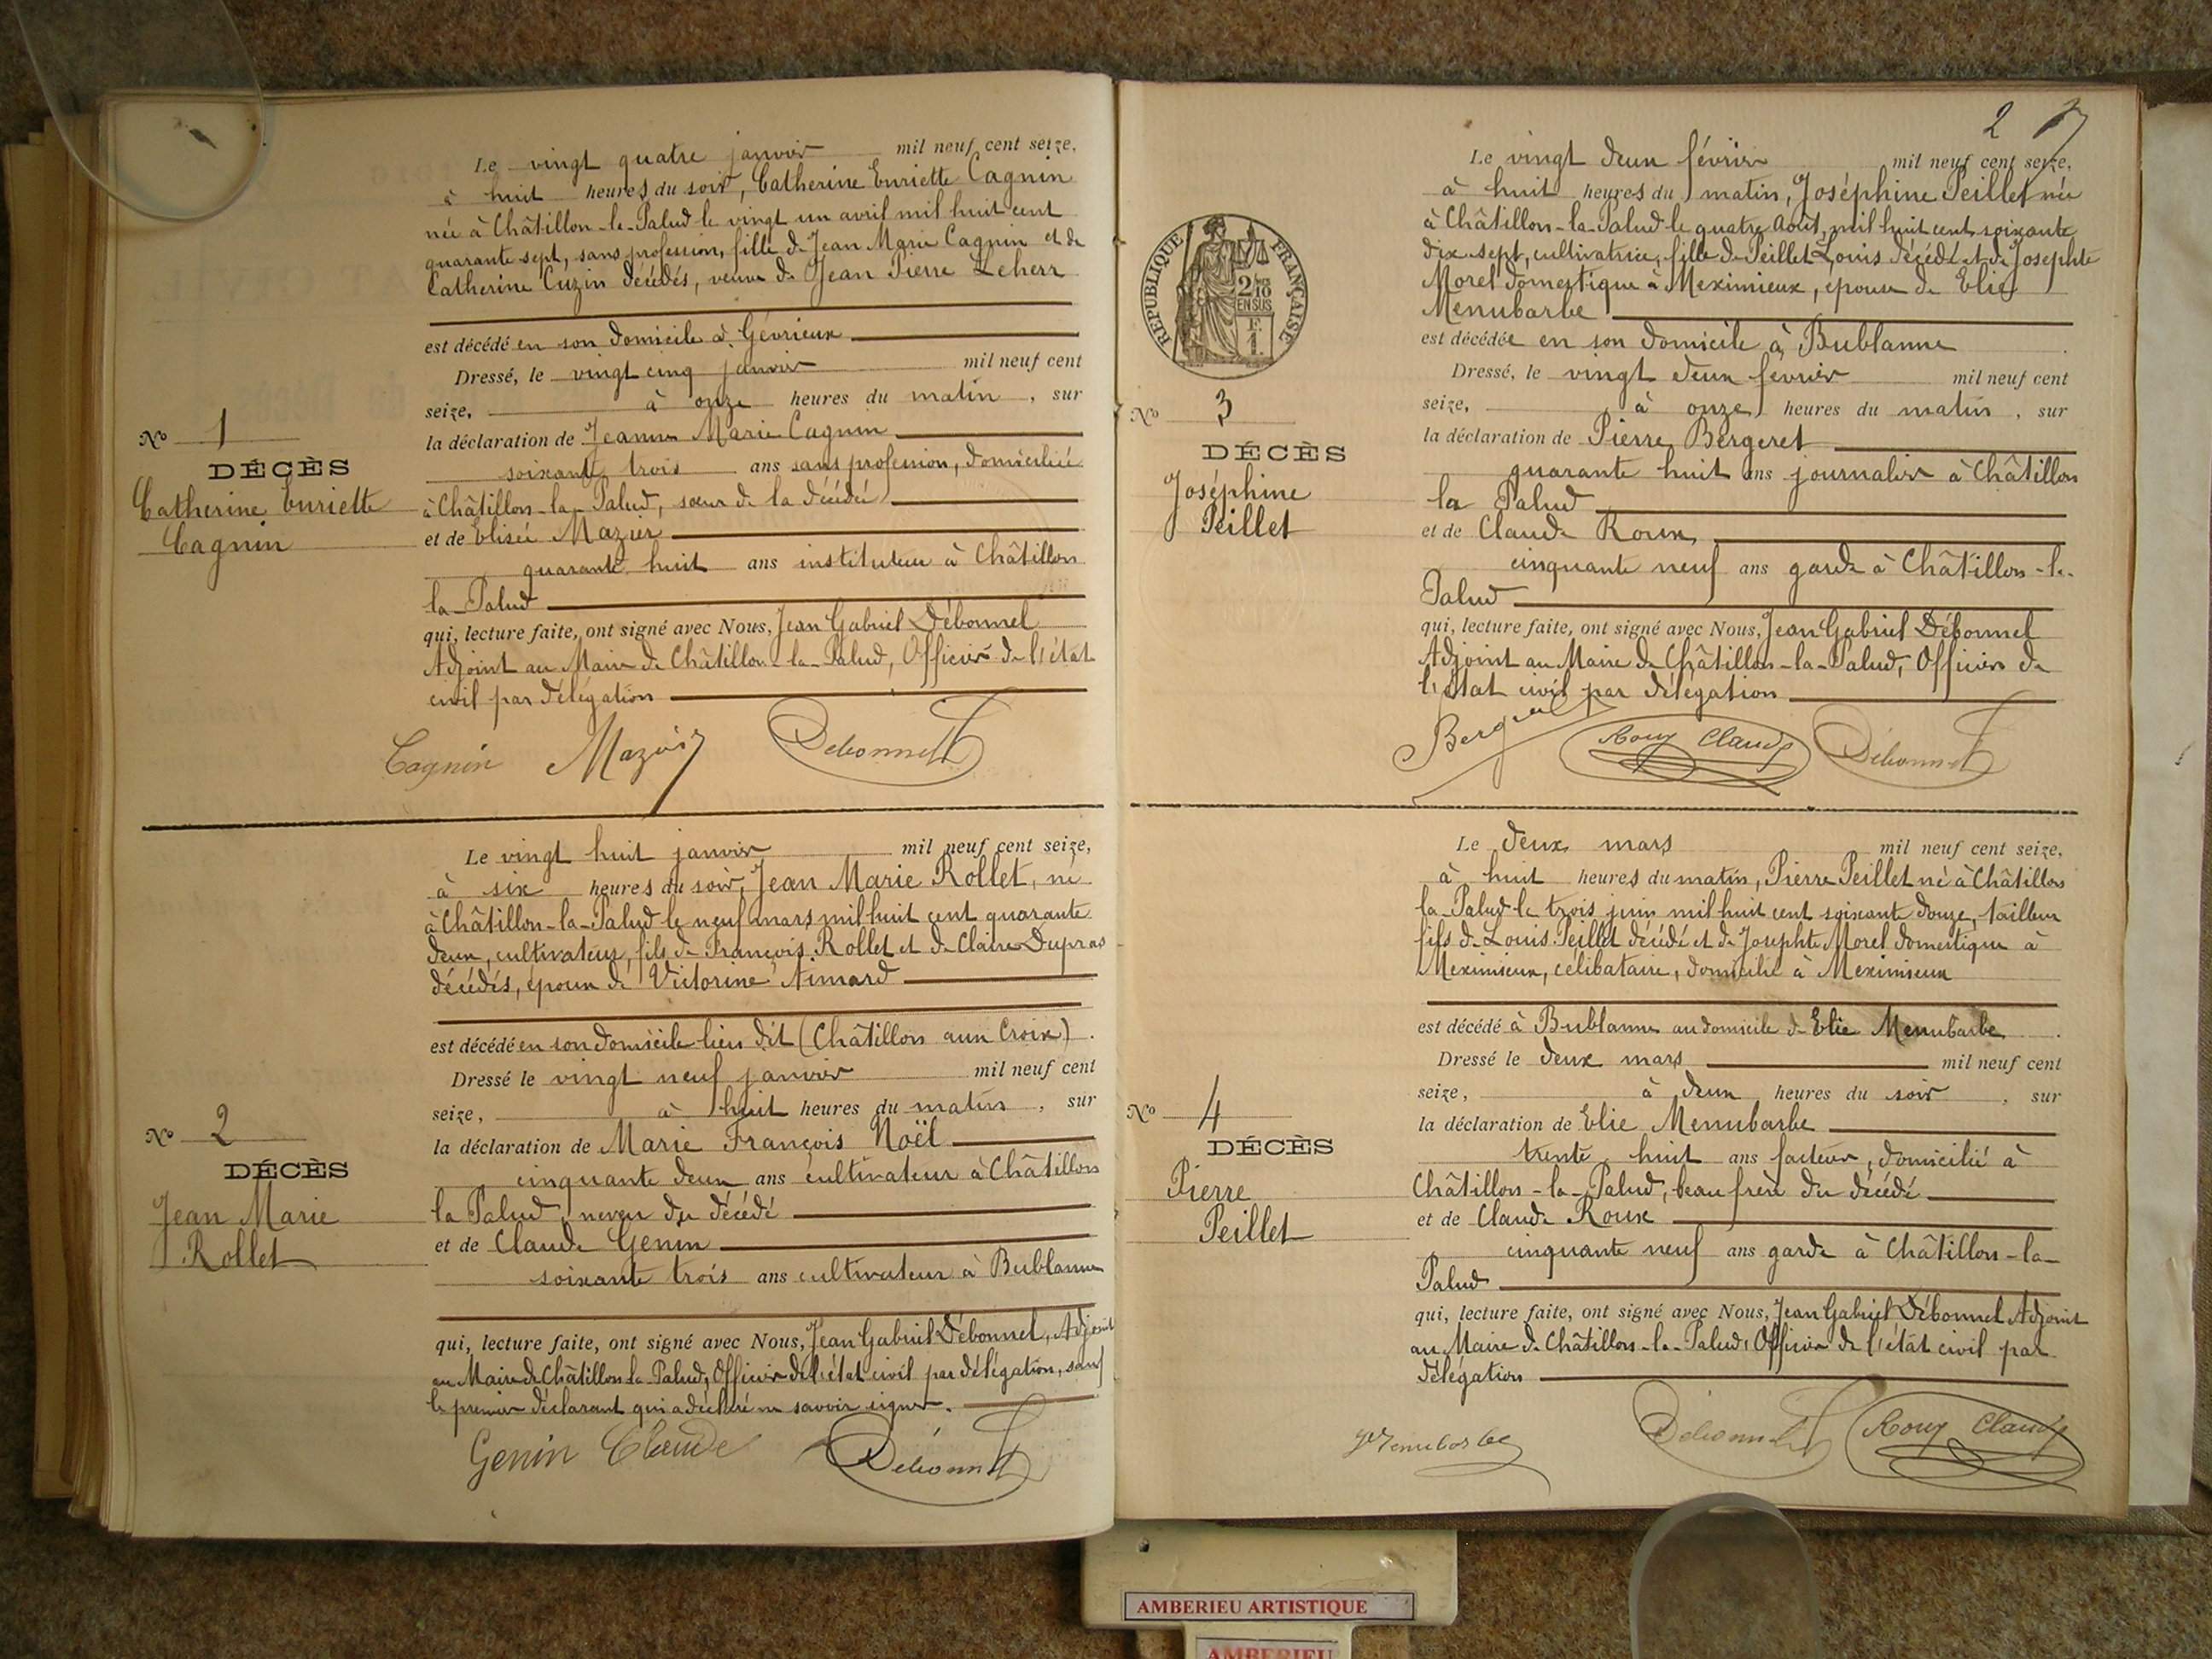 Le vingt quatre janvier mil neuf cent seize,
à huit heures du soir, Catherine Enriette Cagnin
née à Châtillon-la-Palud le vingt un avril mil huit cent
quarante sept, sans profession, fille de Jean Marie Cagnin et de
Catherine Cuzin décédés, veuve de Jean Pierre Leherr
est décédé en son domicile à Gévrieux
Dressé, le vingt cinq janvier mil neuf cent
seize, à onze heures du matin, sur
la déclaration de Jeanne Marie Cagnin
soixante trois ans sans profession, domiciliée
à Châtillon-la-Palud, sœur de la décédée
et de Elisée Mazuir
quarante huit ans instituteur à Châtillon
la-Palud
qui, lecture faite, ont signé avec Nous, Jean Gabriel Débonnel
Adjoint au Maire de Châtillon-la-Palud, Officier de l'état
civil par délégation
Cagnin Mazuir Débonnel
No 1
DÉCÈS
Catherine Enriette
Cagnin
Le vingt huit janvier mil neuf cent seize,
à six heures du soir, Jean Marie Rollet, né
à Châtillon-la-Palud le neuf mars mil huit cent quarante
deux, cultivateur, fils de François Rollet et de Claire Dupras
décédés, époux de Victorine Aimard
est décédé en son domicile lieu dit (Châtillon aux Croix).
Dressé le vingt neuf janvier mil neuf cent
seize, à huit heures du matin, sur
la déclaration de Marie François Noël
cinquante deux ans cultivateur à Châtillon
la Palud, neveu du décédé
et de Claude Genin
soixante trois ans cultivateur à Bublanne
qui, lecture faite, ont signé avec Nous, Jean Gabriel Débonnel, Adjoint
au Maire de Châtillon la Palud, Officier de l'état civil par délégation, sauf
le premier déclarant qui a déclaré ne savoir signer.
Genin Claude Débonnel
No 2
DÉCÈS
Jean Marie
Rollet
2
RÉPUBLIQUE FRANÇAISE
2/10
EN SUS
F.
1.
Le vingt deux février mil neuf cent seize,
à huit heures du matin, Joséphine Peillet née
à Châtillon-la-Palud le quatre Août mil huit cent soixante
dix-sept, cultivatrice, fille de Peillet Louis décédé et de Josephte
Morel domestique à Meximieux, épouse de Elie
Menubarbe
est décédée en son domicile à Bublanne
Dressé, le vingt deux février mil neuf cent
seize, à onze heures du matin, sur
la déclaration de Pierre Bergeret
quarante huit ans journalier à Châtillon
la Palud
et de Claude Roux
cinquante neuf ans garde à Châtillon-la-
Palud
qui, lecture faite, ont signé avec Nous, Jean Gabriel Débonnel
Adjoint au Maire de Châtillon-la-Palud, Officier de
l'état civil par délégation
Roux Claude Débonnel
No 3
DÉCÈS
Joséphine
Peillet
Le deux mars mil neuf cent seize,
à huit heures du matin, Pierre Peillet né à Châtillon
la-Palud le trois juin mil huit cent soixante douze, tailleur
fils de Louis Peillet décédé et de Josephte Morel domestique à
Meximieux, célibataire, domicilié à Meximieux
est décédé à Bublanne au domicile de Elie Menubarbe
Dressé le deux mars mil neuf cent
seize, à deux heures du soir, sur
la déclaration de Elie Menubarbe
trente huit ans facteur, domicilié à
Châtillon-la-Palud, beau frère du décédé
et de Claude Roux
cinquante neuf ans garde à Châtillon-la-
Palud
qui, lecture faite, ont signé avec Nous, Jean Gabriel Débonnel Adjoint
au Maire de Châtillon-la-Palud, Officier de l'état civil par
délégation
Menubarbe Débonnel Roux Claude
No 4
DÉCÈS
Pierre
Peillet
AMBERIEU ARTISTIQUE
AMBERIEU